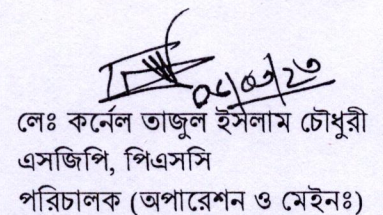 লেঃ কর্নেল তাজুল ইসলাম চৌধুরী
এসজিপি, পিএসসি
পরিচালক (অপারেশন ও মেইনঃ)